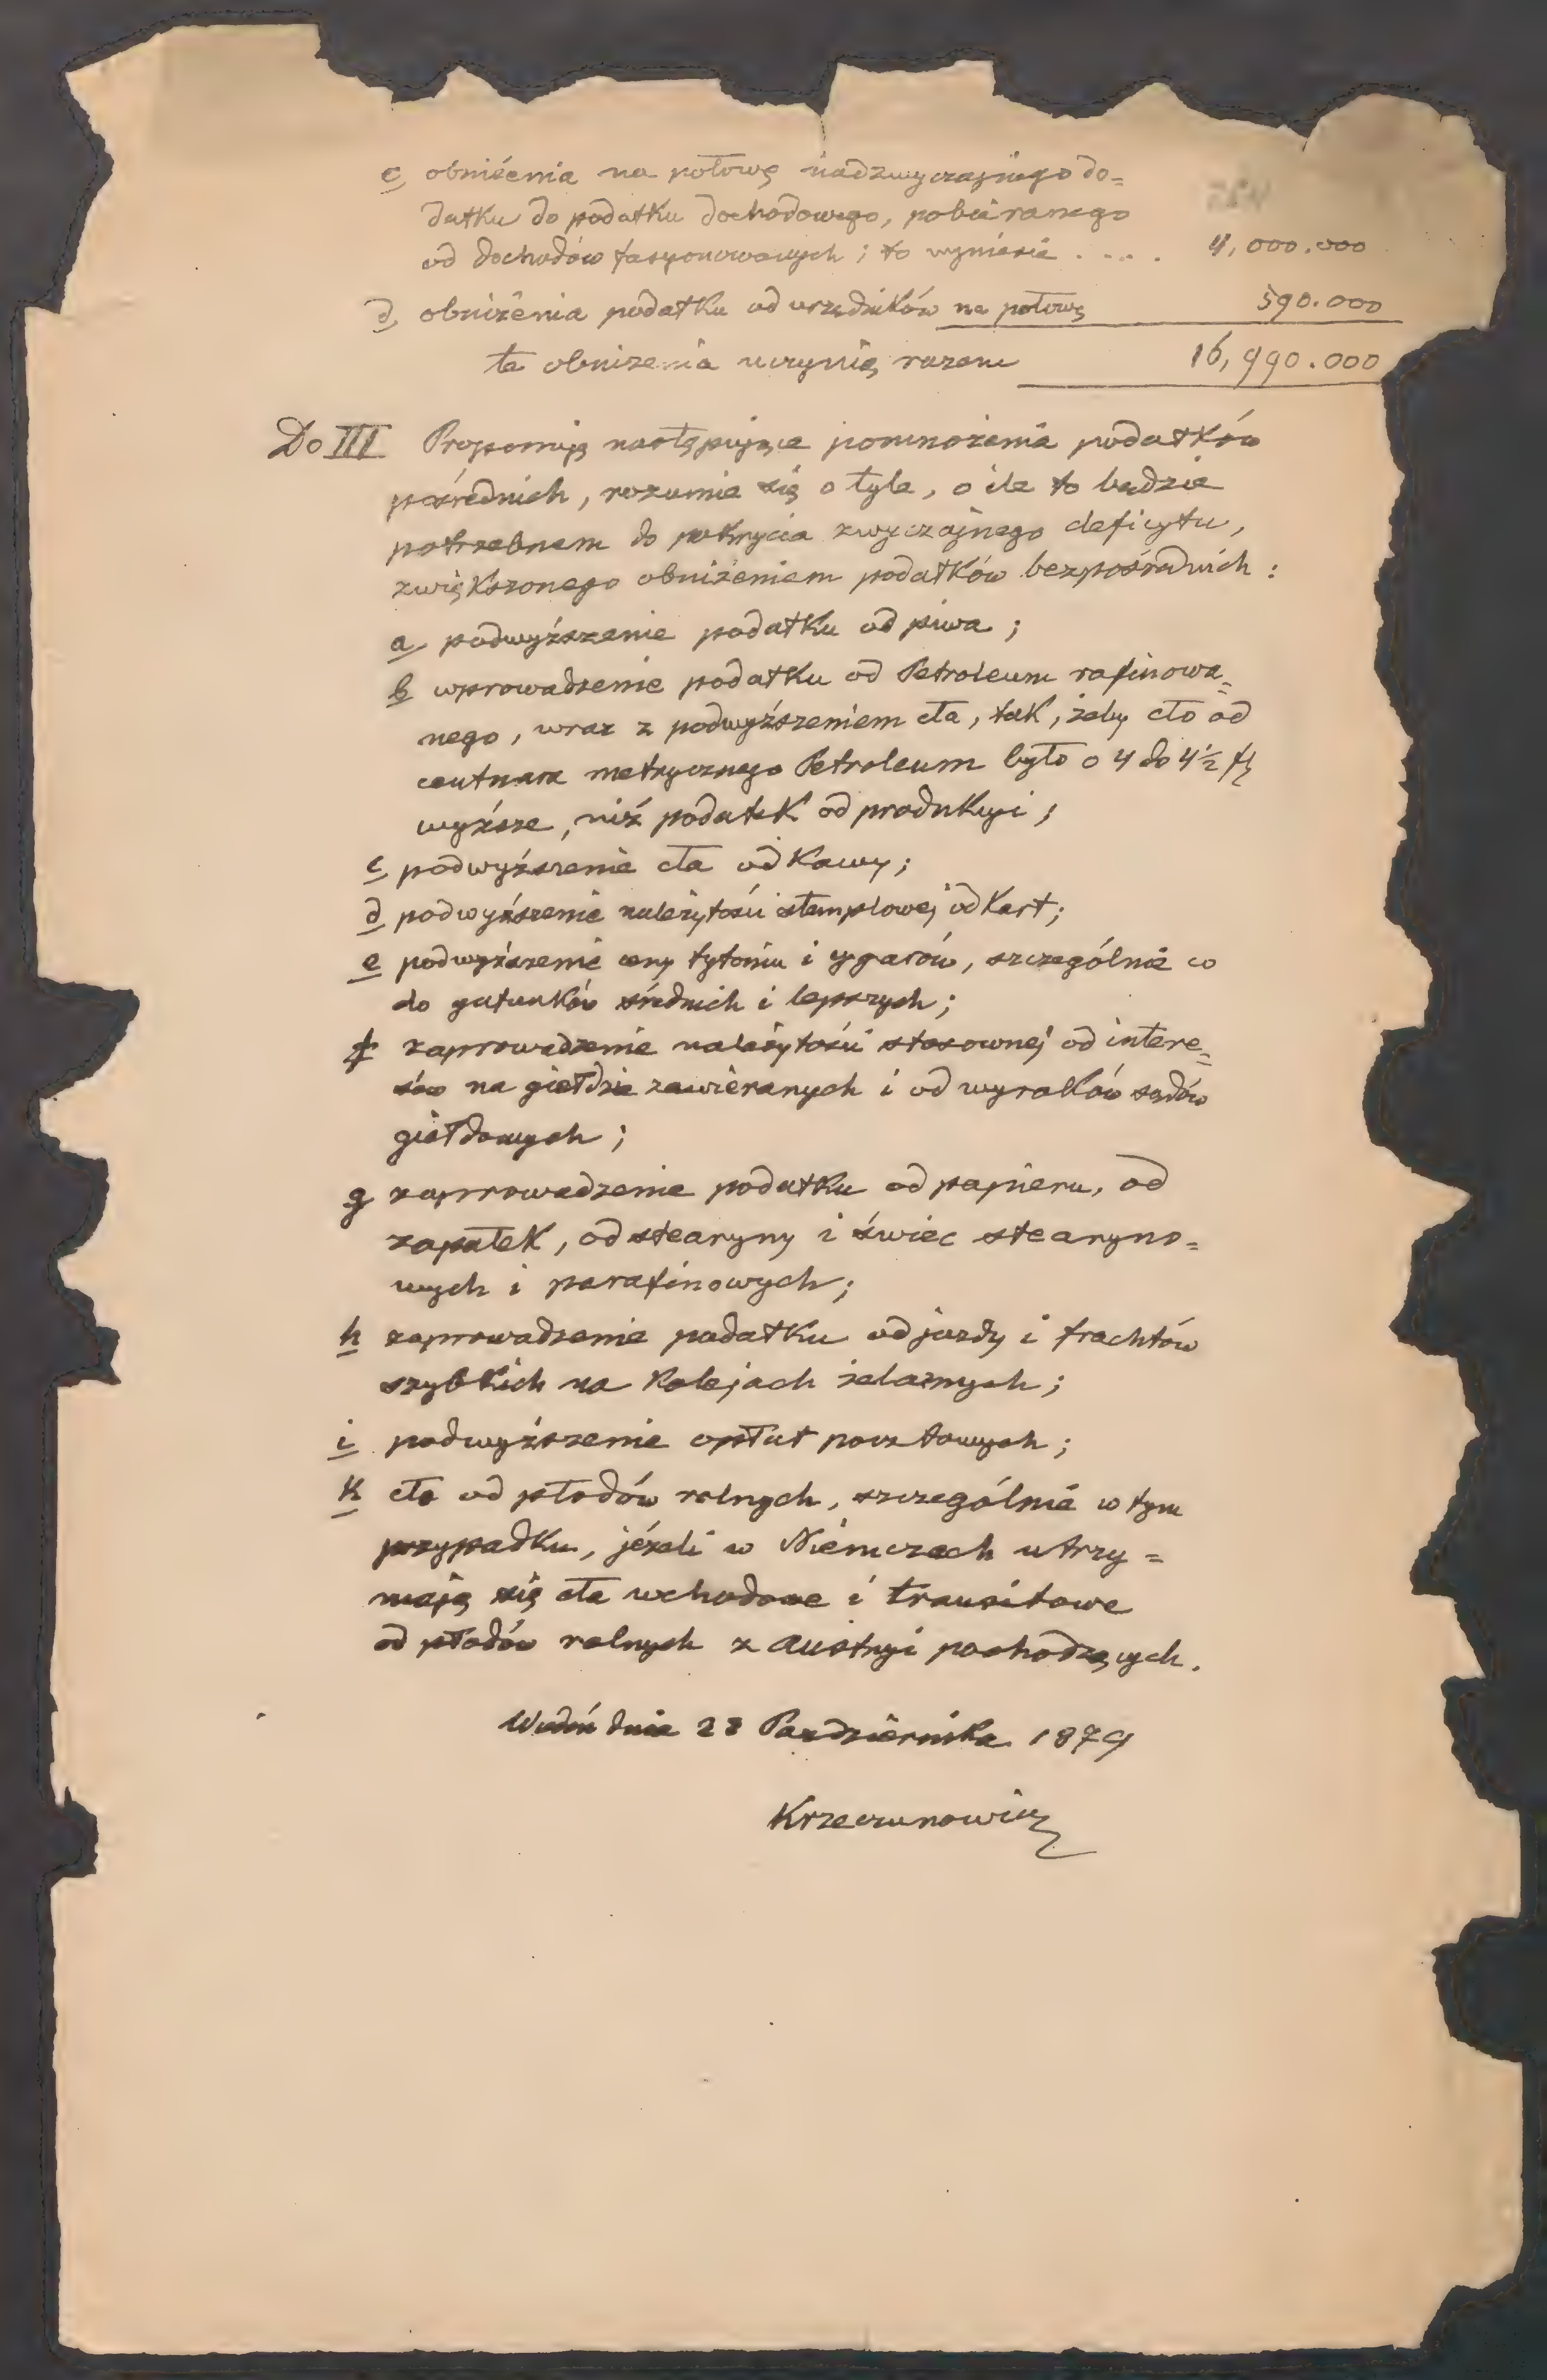 c, obniżenia na połowę nadzwyczajnego do=
datku do podatku dochodowego, pobieranego
od dochodów fasyonowanych; to wyniesie . . . . 4,000.000
d, obniżenia podatku od urzędników na połowę 590.000
te obniżenia uczynią razem 16,990.000
Do III Proponuję następujące pomnożenia podatków
pośrednich, rozumie się o tyle, o ile to będzie
potrzebnem do pokrycia zwyczajnego deficytu,
zwiększonego obniżeniem podatków bezpośrednich :
a, podwyższenie podatku od piwa ;
b wprowadzenie podatku od Petroleum rafinowa=
nego, wraz z podwyższeniem cła, tak, żeby cło od
centnara metrycznego Petroleum było o 4 do 4 1/2 fl
wyższe, niż podatek od produkcyi ;
c, podwyższenie cła od Kawy;
d podwyższenie należytości stemplowej od Kart;
e podwyższenie ceny tytoniu i cygarów, szczególnie co
do gatunków średnich i lepszych;
f zaprowadzenie należytości stosownej od intere=
sów na giełdzie zawieranych i od wyroków sądów
giełdowych ;
g zaprowadzenie podatku od papieru, od
zapałek, od stearyny i świec stearyno=
wych i parafinowych;
h zaprowadzenie podatku od jazdy i frachtów
szybkich na Kolejach żelaznych;
i podwyższenie opłat pocztowych;
k cło od płodów rolnych, szczególnie w tym
przypadku, jeżeli w Niemczech utrzy=
mają się cła wchodowe i transitowe
od płodów rolnych z Austryi pochodzących.
Wiedeń dnia 28 Października 1879
Krzeczunowicz